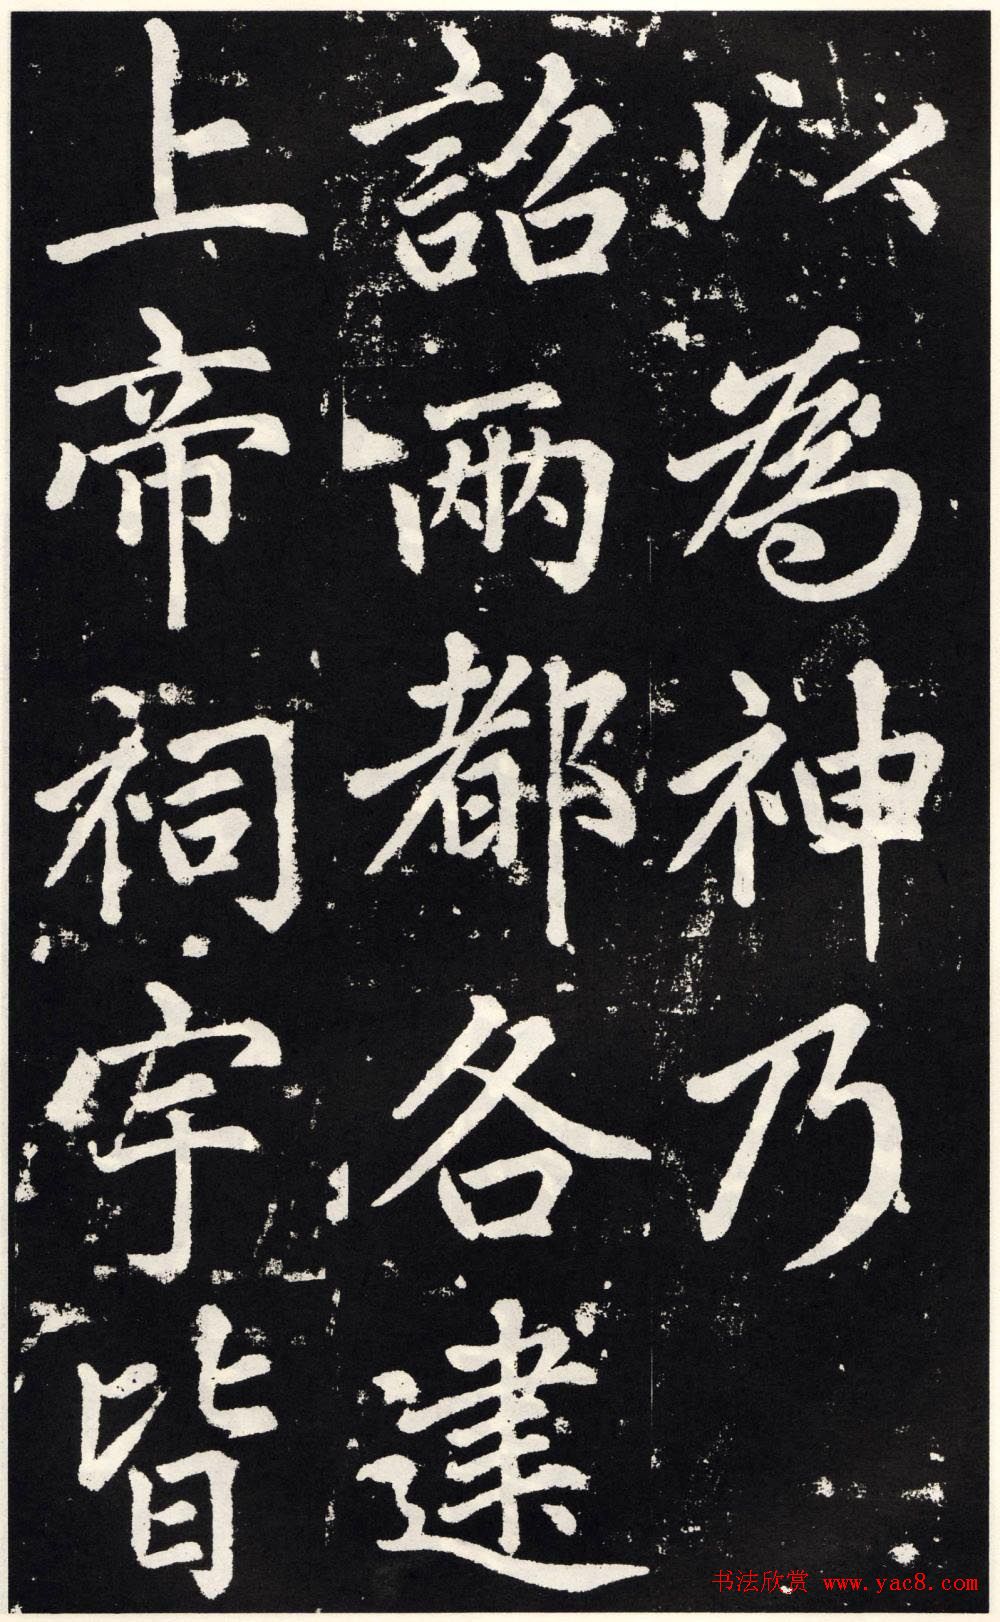 以為神乃
詔兩都各建
上帝祠宇皆
书法欣赏 www.yac8.com